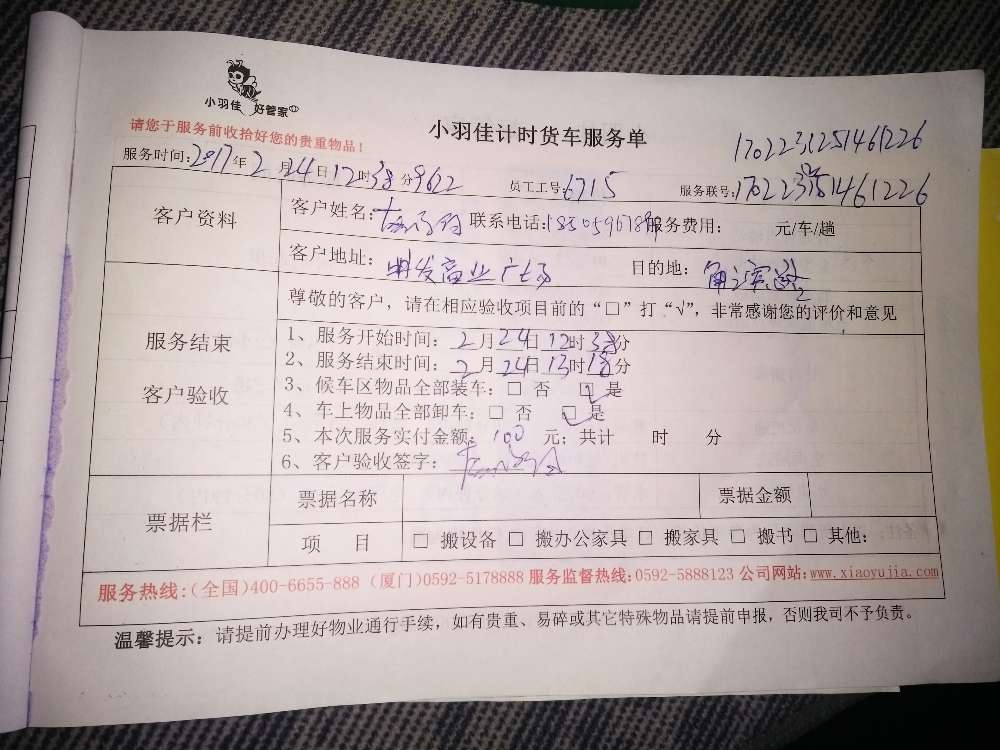 小羽佳 好管家
请您于服务前收拾好您的贵重物品！
小羽佳计时货车服务单
170223125146​1226
服务时间：2017年2月24日12时38分 9622 员工工号：6715 服务联号：
客户资料
客户姓名： 联系电话： 服务费用： 元/车/趟
客户地址：明发商业广场 目的地：
服务结束
客户验收
尊敬的客户，请在相应验收项目前的“□”打“√”，非常感谢您的评价和意见
1、服务开始时间：2月24日12时38分
2、服务结束时间：2月24日13时18分
3、候车区物品全部装车：□ 否 □ 是
4、车上物品全部卸车：□ 否 □ 是
5、本次服务实付金额：100 元；共计 时 分
6、客户验收签字：
票据栏
票据名称 票据金额
项 目 □ 搬设备 □ 搬办公家具 □ 搬家具 □ 搬书 □ 其他：
服务热线：（全国）400-6655-888 （厦门）0592-5178888 服务监督热线：0592-5888123 公司网站：www.xiaoyujia.com
温馨提示：请提前办理好物业通行手续，如有贵重、易碎或其它特殊物品请提前申报，否则我司不予负责。